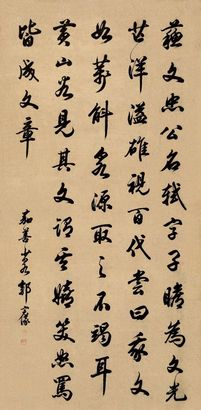 蘇文忠公名軾字子瞻為文光
芒洋溢雄視百代嘗曰我文
如萬斛泉源取之不竭耳
黃山谷見其文謂嬉笑怒罵
皆成文章
嘉善郭